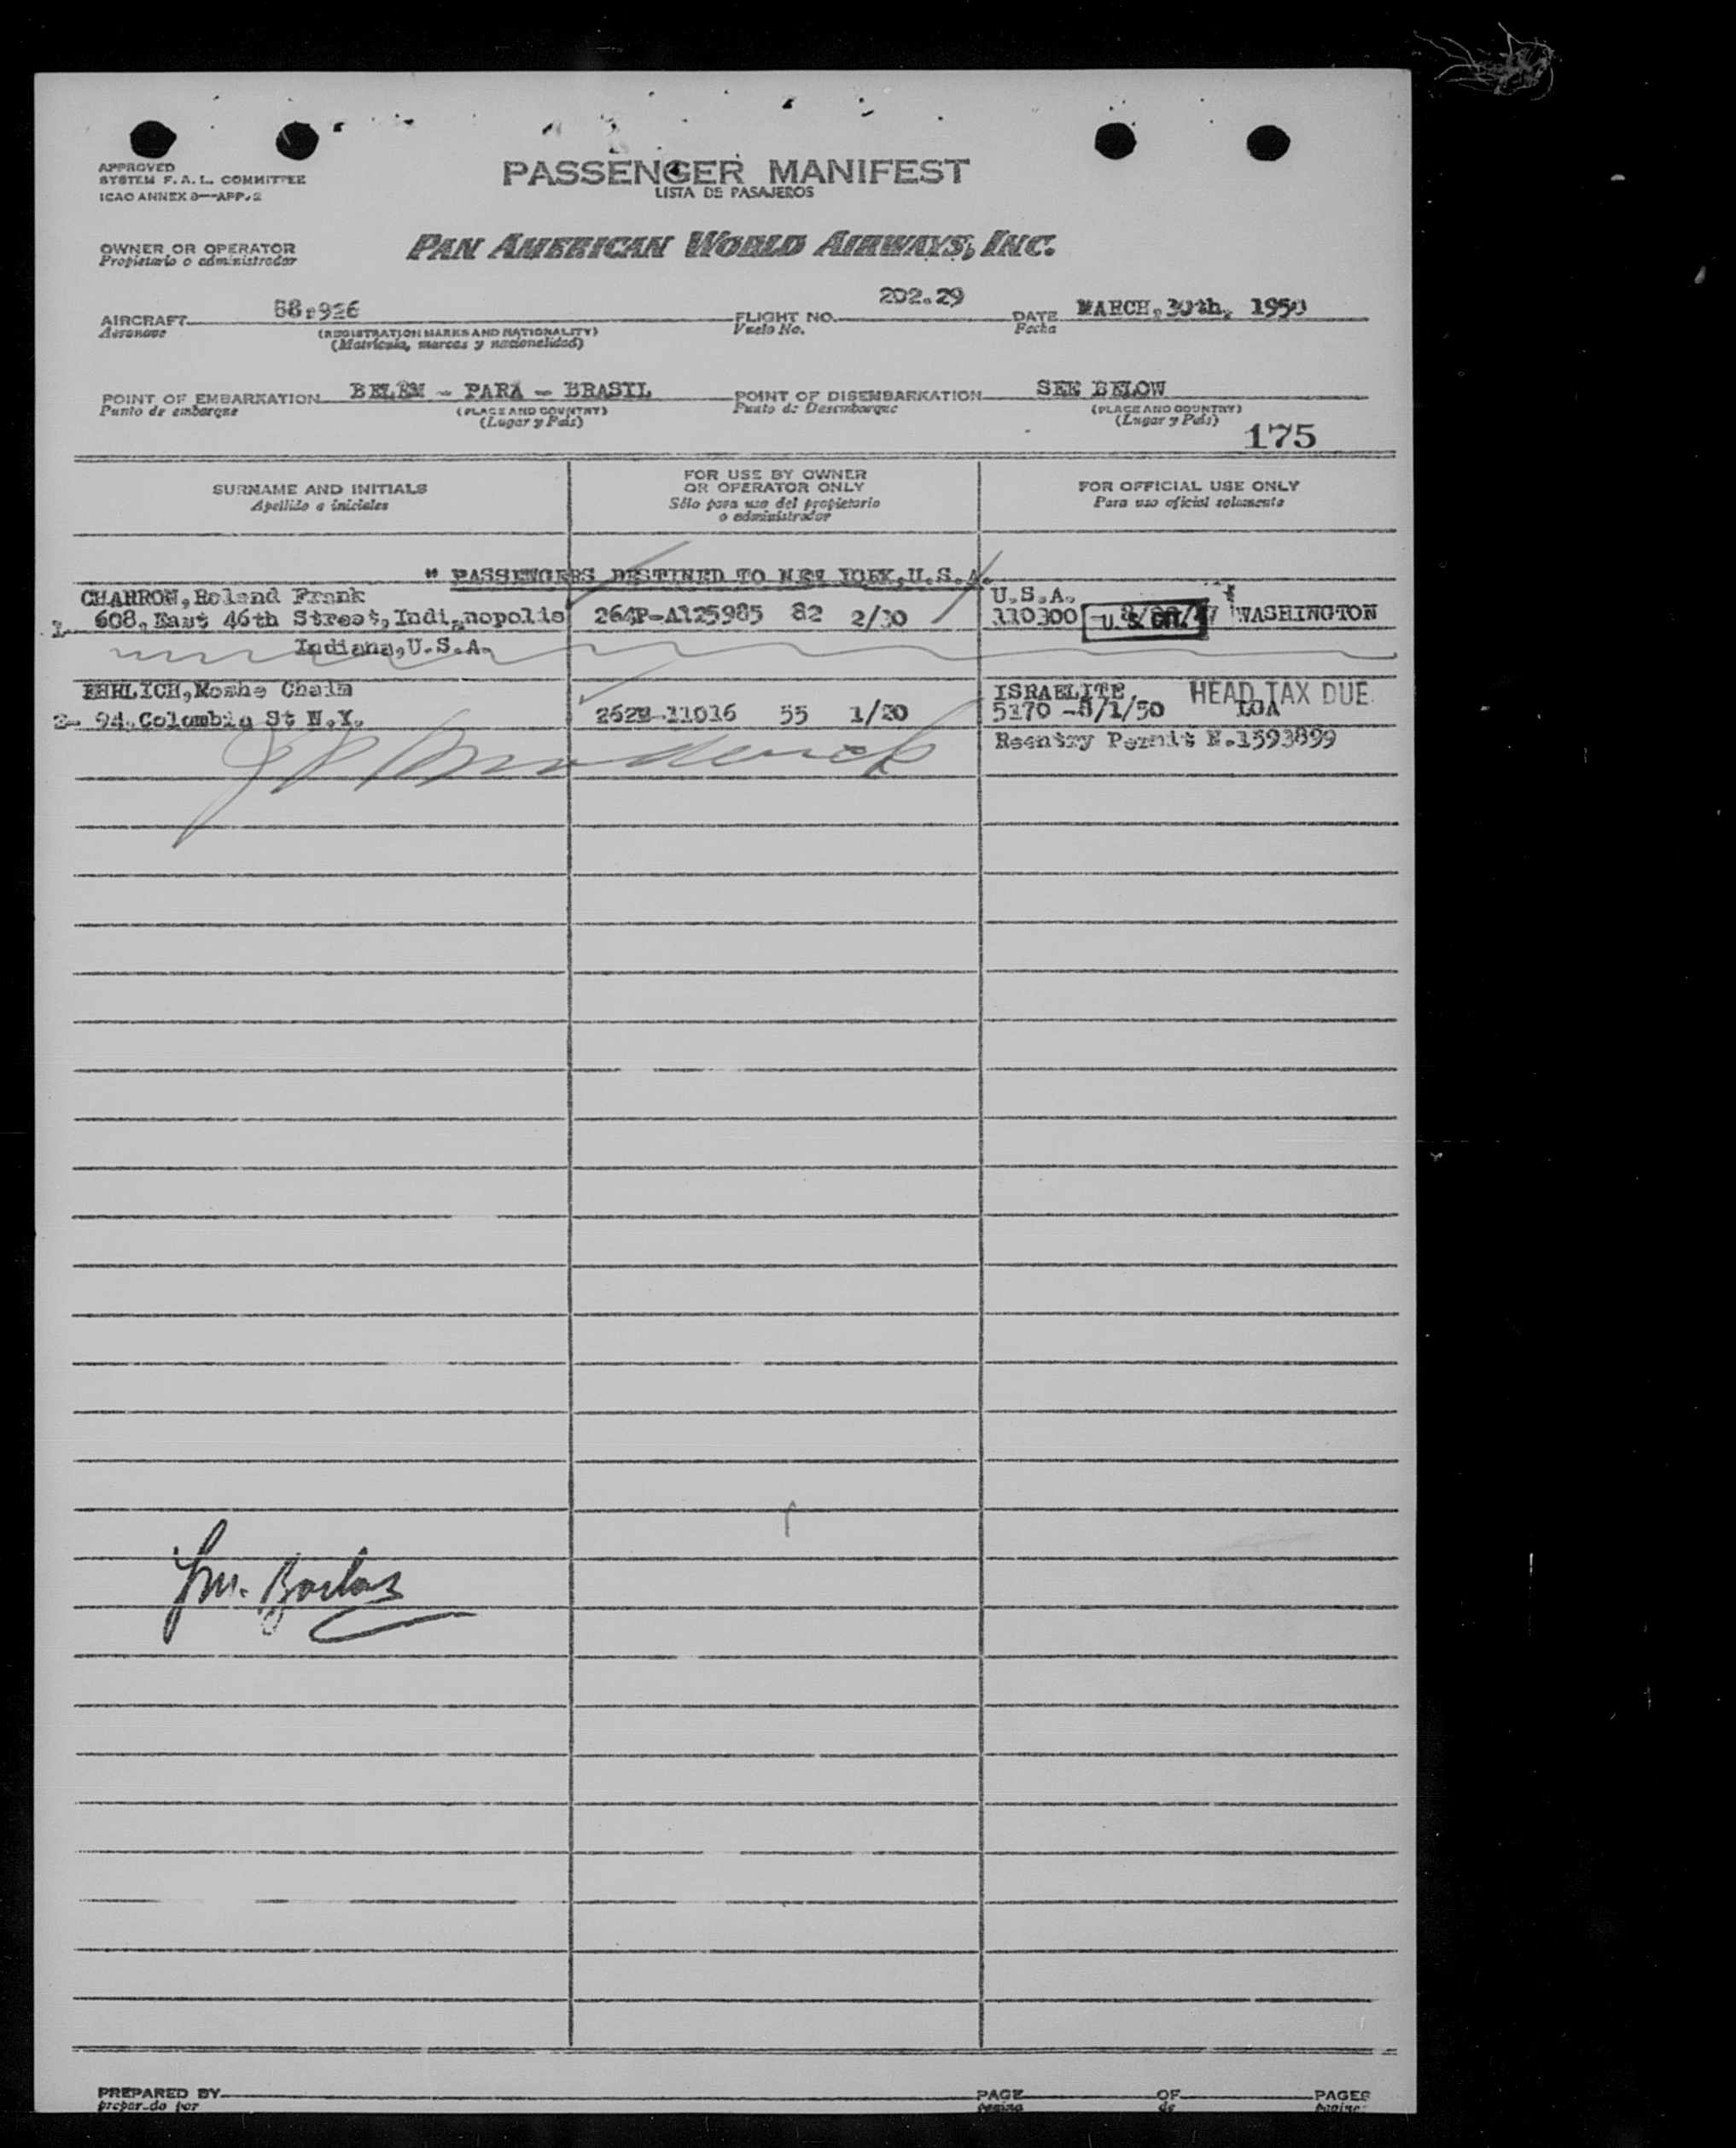 APPROVED
SYSTEM F. A. L. COMMITTEE
ICAO ANNEX 9—APP. 2
PASSENGER MANIFEST
LISTA DE PASAJEROS
OWNER OR OPERATOR
Propietario o administrador
PAN AMERICAN WORLD AIRWAYS, INC.
AIRCRAFT 88:926
Aeronave
(REGISTRATION MARKS AND NATIONALITY)
(Matricula, marcas y nacionalidad)
FLIGHT NO. 202.29
Vuelo No.
DATE MARCH, 30th, 1950
Fecha
POINT OF EMBARKATION BELEM - PARA - BRASIL
Punto de embarque
(PLACE AND COUNTRY)
(Lugar y Pais)
POINT OF DISEMBARKATION SEE BELOW
Punto de Desembarque
(PLACE AND COUNTRY)
(Lugar y Pais)
175
SURNAME AND INITIALS
Apellido e iniciales
FOR USE BY OWNER
OR OPERATOR ONLY
Sólo para uso del propietario
o administrador
FOR OFFICIAL USE ONLY
Para uso oficial solamente
" PASSENGERS DESTINED TO NEW YORK, U.S.A.
CHARRON, Roland Frank
1- 608, East 46th Street, Indianopolis
Indiana, U.S.A.
264P-A125985 82 2/30
U.S.A.
110300 U. S. CIT. WASHINGTON
EHRLICH, Moshe Chaim
2- 94, Colombia St N.Y.
262E-11016 55 1/20
ISRAELITE, HEAD TAX DUE
5170 -8/1/50
Reentry Permit N.1593899
PREPARED BY
preparado por
PAGE
pagina
OF
de
PAGES
paginas